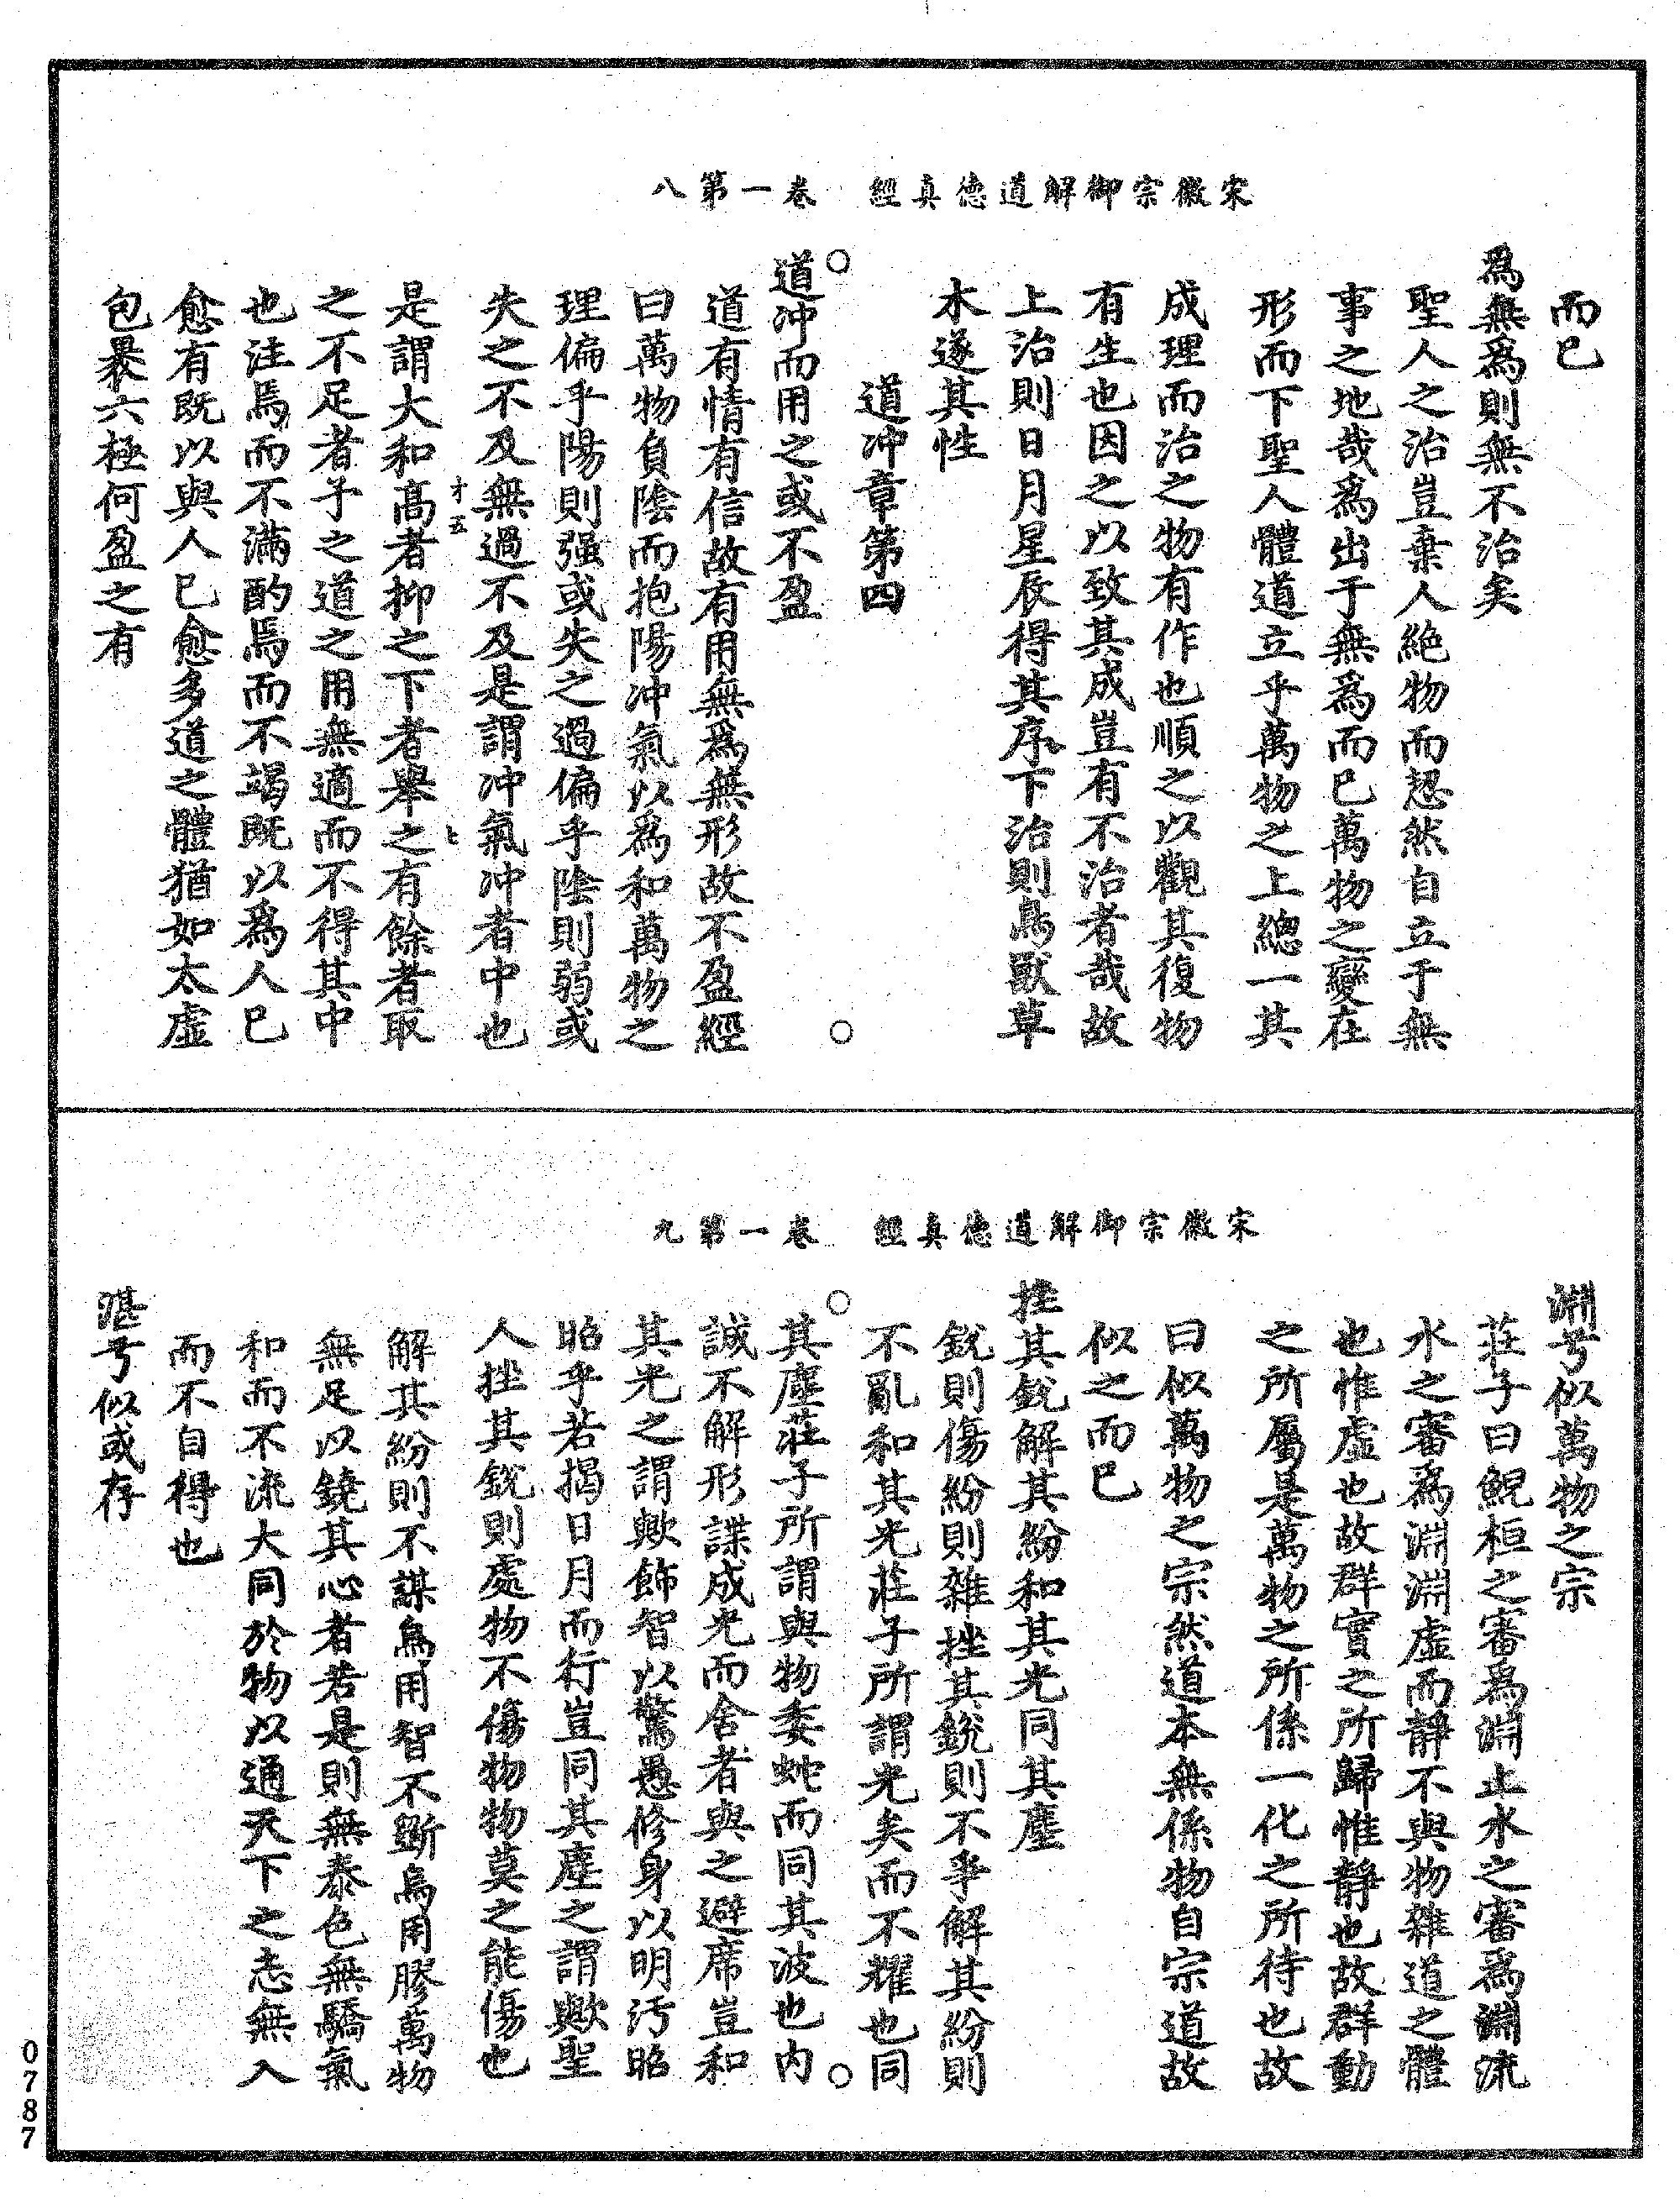 宋徽宗御解道德真經　卷一第八
而已
爲無爲則無不治矣
聖人之治豈棄人絶物而恝然自立于無
事之地哉爲出于無爲而已萬物之變在
形而下聖人體道立乎萬物之上總一其
成理而治之物有作也順之以觀其復物
有生也因之以致其成豈有不治者哉故
上治則日月星辰得其序下治則鳥獸草
木遂其性
道冲章第四
道冲而用之或不盈
道有情有信故有用無爲無形故不盈經
曰萬物負陰而抱陽冲氣以爲和萬物之
理偏乎陽則强或失之過偏乎陰則弱或
失之不及無過不及是謂冲氣冲者中也
才五　七
是謂大和高者抑之下者舉之有餘者取
之不足者予之道之用無適而不得其中
也注焉而不滿酌焉而不竭既以爲人已
愈有既以與人已愈多道之體猶如太虛
包裹六極何盈之有
宋徽宗御解道德真經　卷一第九
淵兮似萬物之宗
莊子曰鯢桓之審爲淵止水之審爲淵流
水之審爲淵淵虛而靜不與物雜道之體
也惟虛也故群實之所歸惟靜也故群動
之所屬是萬物之所係一化之所待也故
曰似萬物之宗然道本無係物自宗道故
似之而已
挫其銳解其紛和其光同其塵
銳則傷紛則雜挫其銳則不爭解其紛則
不亂和其光莊子所謂光矣而不耀也同
其塵莊子所謂與物委蛇而同其波也内
誠不解形諜成光而舍者與之避席豈和
其光之謂歟飾智以驚愚修身以明汚昭
昭乎若揭日月而行豈同其塵之謂歟聖
人挫其銳則處物不傷物物莫之能傷也
解其紛則不謀烏用智不斵烏用膠萬物
無足以鐃其心者若是則無泰色無驕氣
和而不流大同於物以通天下之志無入
而不自得也
湛兮似或存
0787